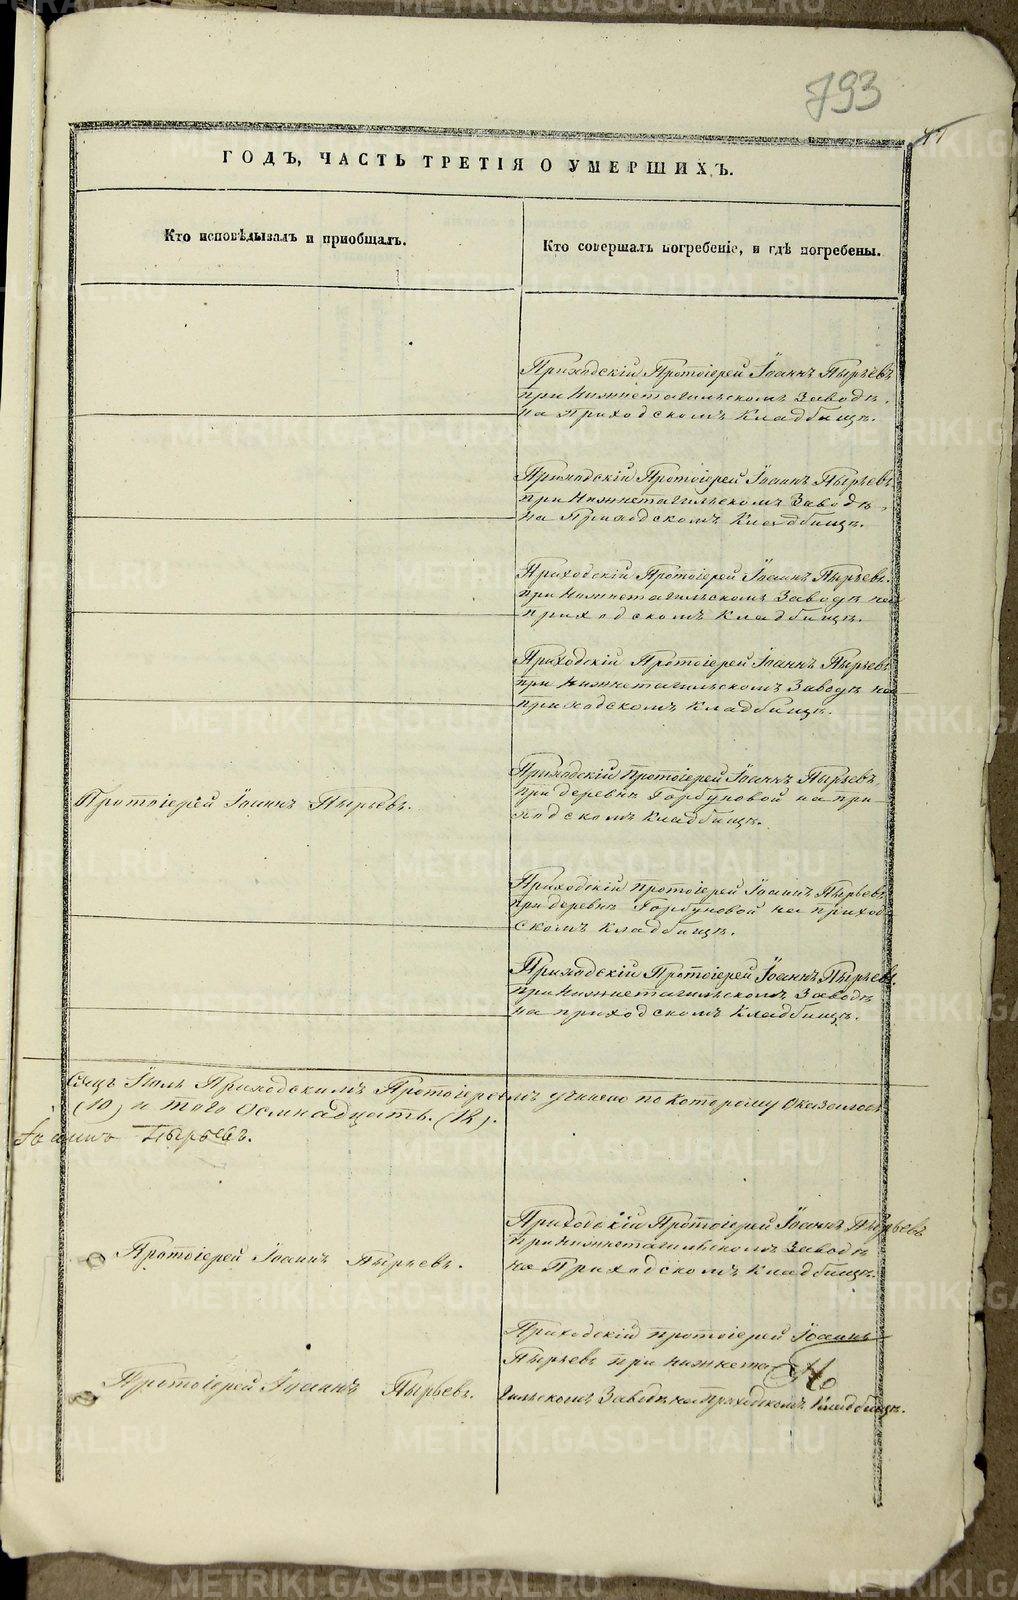 793
ГОДЪ, ЧАСТЬ ТРЕТІЯ О УМЕРШИХЪ.
Кто исповѣдывалъ и пріобщалъ.
Кто совершалъ погребеніе, и гдѣ погребены.
Приходскій Протоіерей Іоаннъ Пырьевъ
при Нижнетагильскомъ Заводѣ,
на Приходскомъ Кладбищѣ.
Приходскій Протоіерей Іоаннъ Пырьевъ
при Нижнетагильскомъ Заводѣ,
на Приходскомъ Кладбищѣ.
Приходскій Протоіерей Іоаннъ Пырьевъ.
при Нижнетагильскомъ Заводѣ на
приходскомъ Кладбищѣ.
Приходскій Протоіерей Іоаннъ Пырьевъ
при Нижнетагильскомъ Заводѣ на
приходскомъ Кладбищѣ.
Протоіерей Іоаннъ Пырьевъ.
Приходскій Протоіерей Іоаннъ Пырьевъ,
при деревнѣ Горбуновой на при-
ходскомъ Кладбищѣ.
Приходскій протоіерей Іоаннъ Пырьевъ
при деревнѣ Горбуновой на приход-
скомъ Кладбищѣ.
Приходскій Протоіерей Іоаннъ Пырьевъ.
при Нижнетагильскомъ Заводѣ
на приходскомъ Кладбищѣ.
сяцъ Іюль Приходскимъ Протоіереемъ учинено по которому Оказалось
(10) и того Осмнадцать. (18).
Іоаннъ Пырьевъ.
Протоіерей Іоаннъ Пырьевъ.
Приходскій Протоіерей Іоаннъ Пырьевъ
при Нижнетагильскомъ Заводѣ
на Приходскомъ Кладбищѣ.
Протоіерей Іоаннъ Пырьевъ.
Приходскій протоіерей Іоаннъ
Пырьевъ при нижнета
гильскомъ Заводѣ на Приходскомъ Кладбищѣ.
METRIKI.GASO-URAL.RU